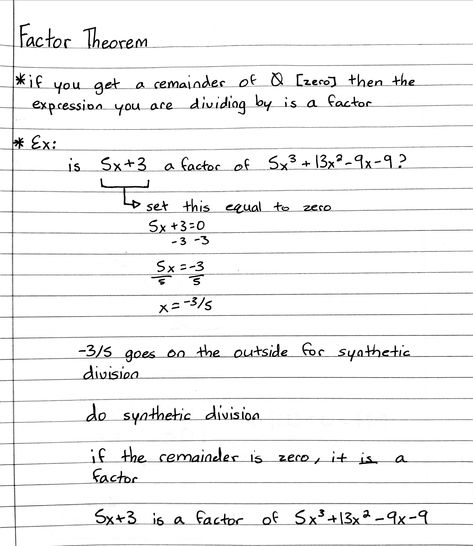 Factor Theorem
*if you get a remainder of 0 [zero] then the
expression you are dividing by is a factor
* Ex:
is 5x+3 a factor of 5x³+13x²-9x-9?
set this equal to zero
5x+3=0
-3 -3
5x = -3
5 5
x = -3/5
-3/5 goes on the outside for synthetic
division
do synthetic division
if the remainder is zero, it is a
factor
5x+3 is a factor of 5x³+13x²-9x-9